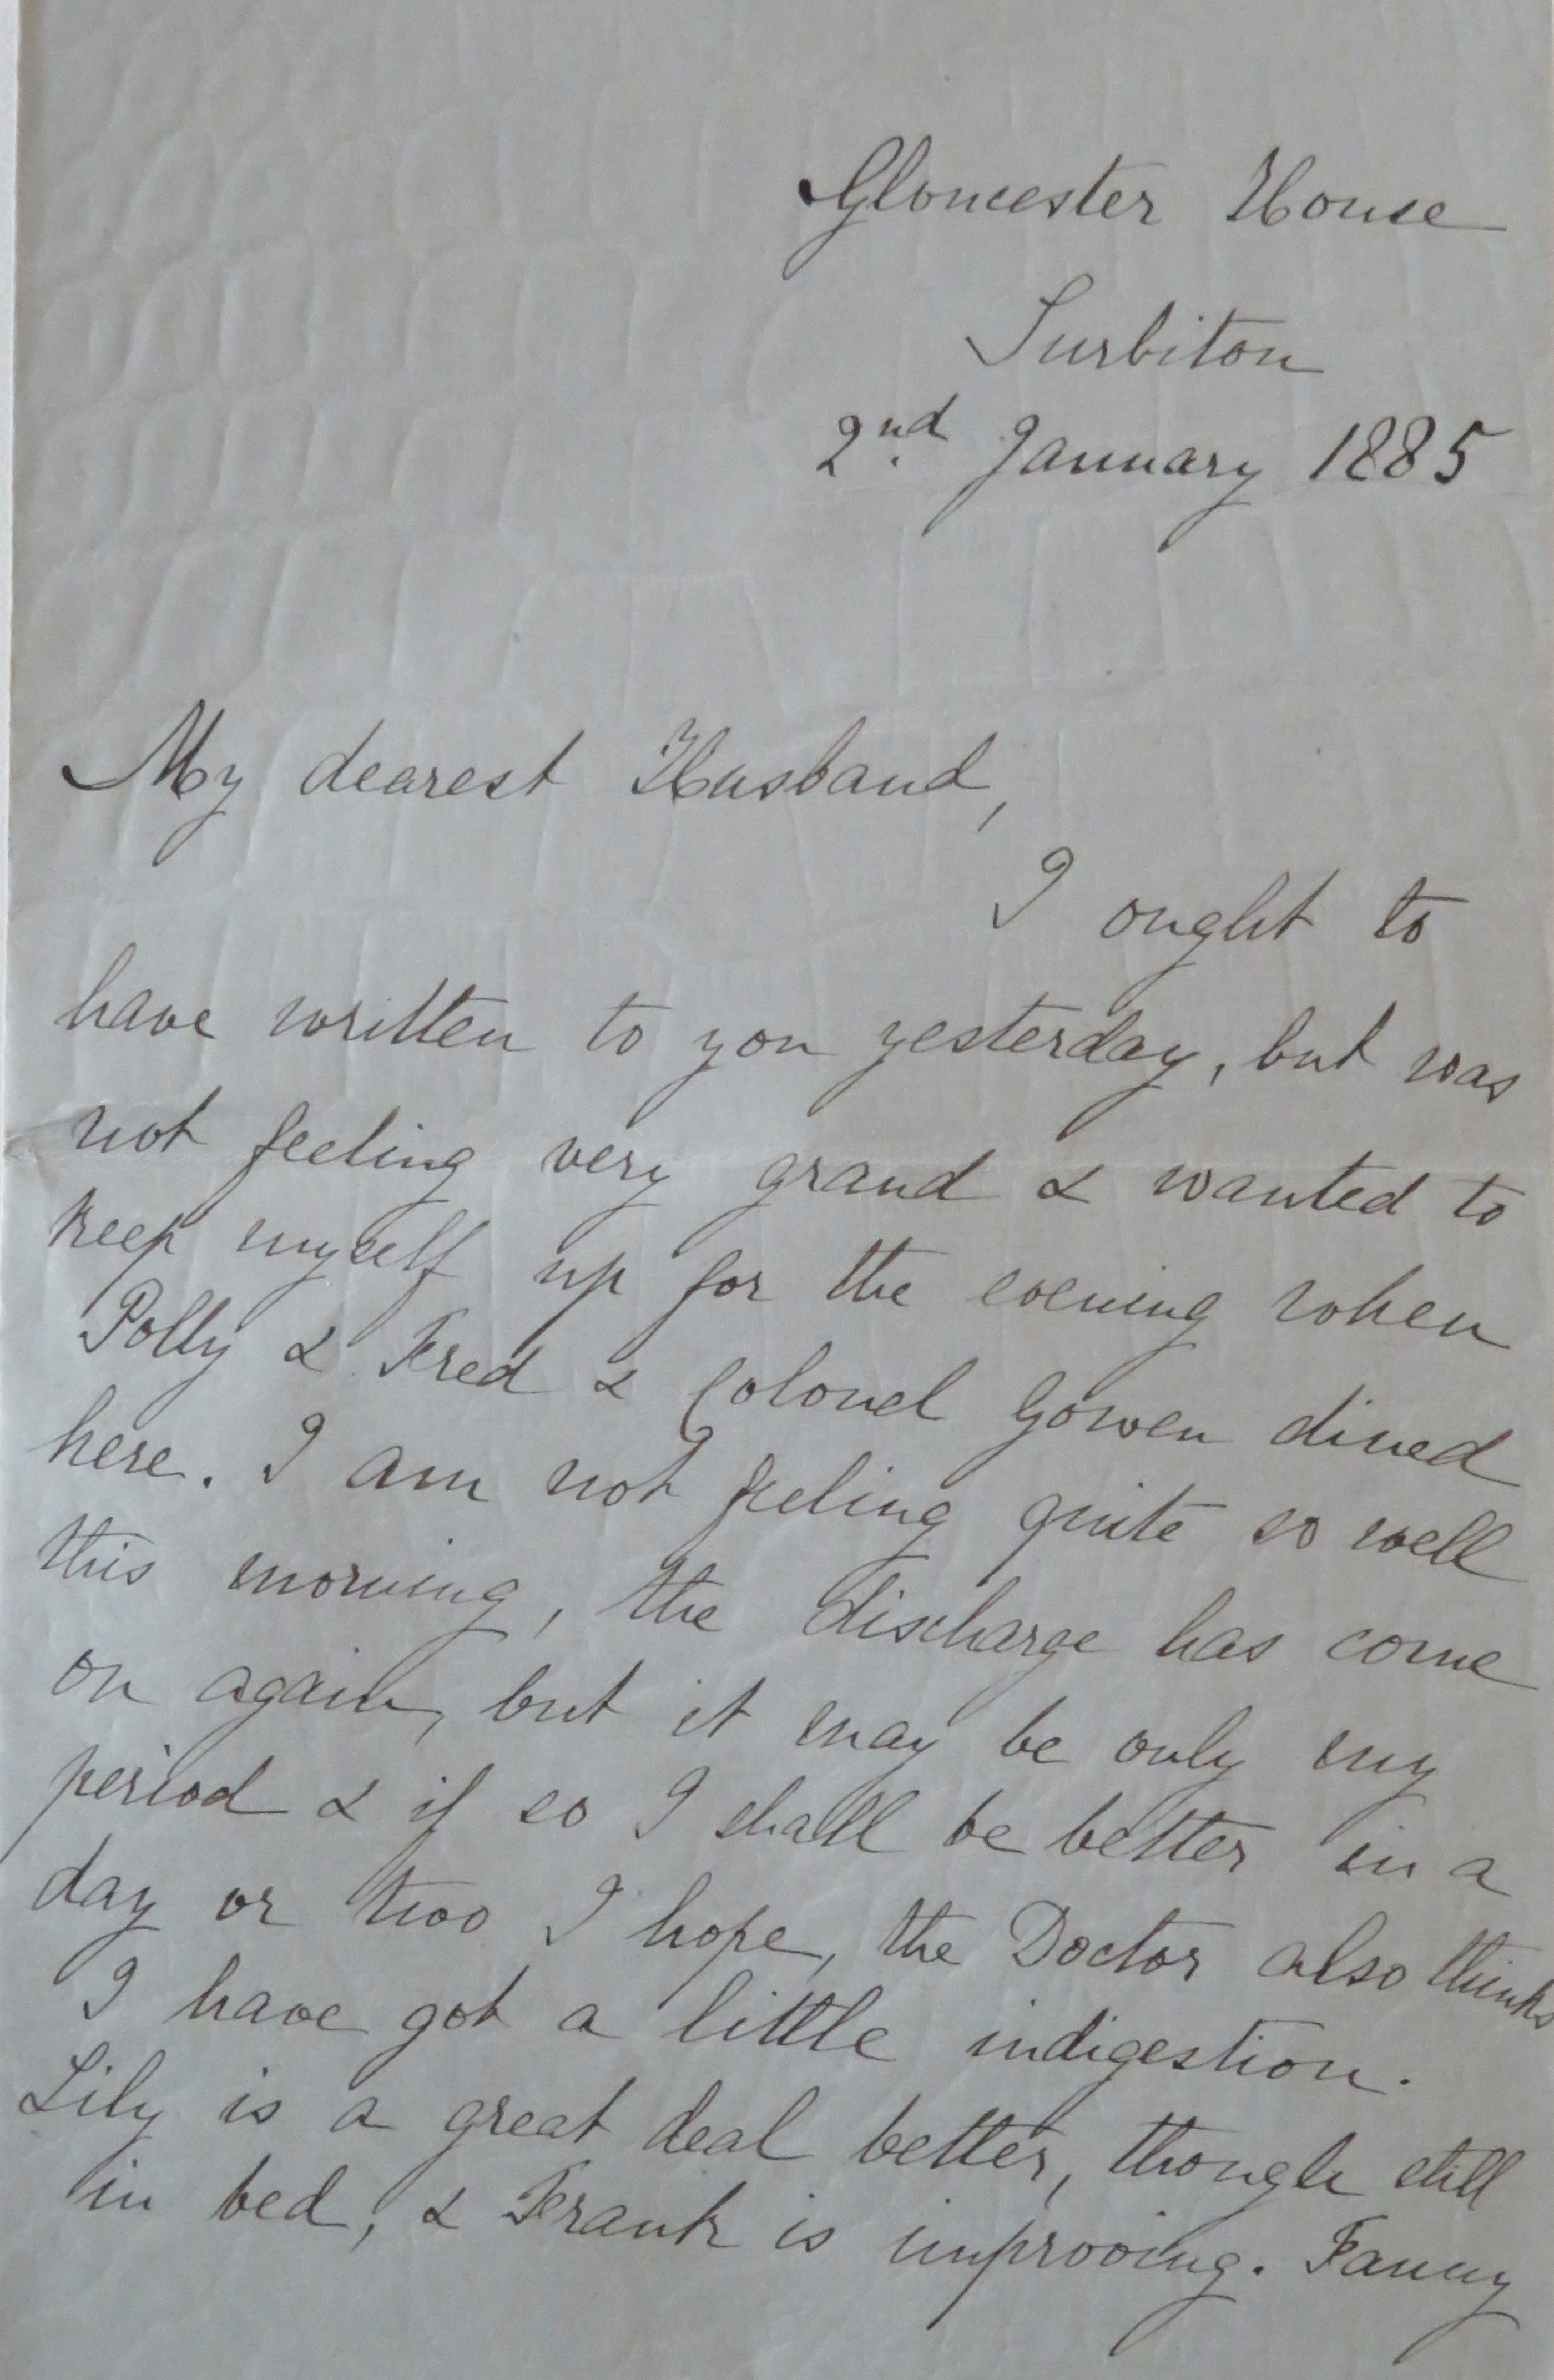 Gloucester House
Surbiton
2nd January 1885
My dearest Husband,
I ought to
have written to you yesterday, but was
not feeling very grand & wanted to
keep myself up for the evening when
Polly & Fred & Colonel Gowen dined
here. I am not feeling quite so well
this morning, the discharge has come
on again, but it may be only my
period & if so I shall be better in a
day or two I hope, the Doctor also thinks
I have got a little indigestion.
Lily is a great deal better, though still
in bed, & Frank is improving. Fanny